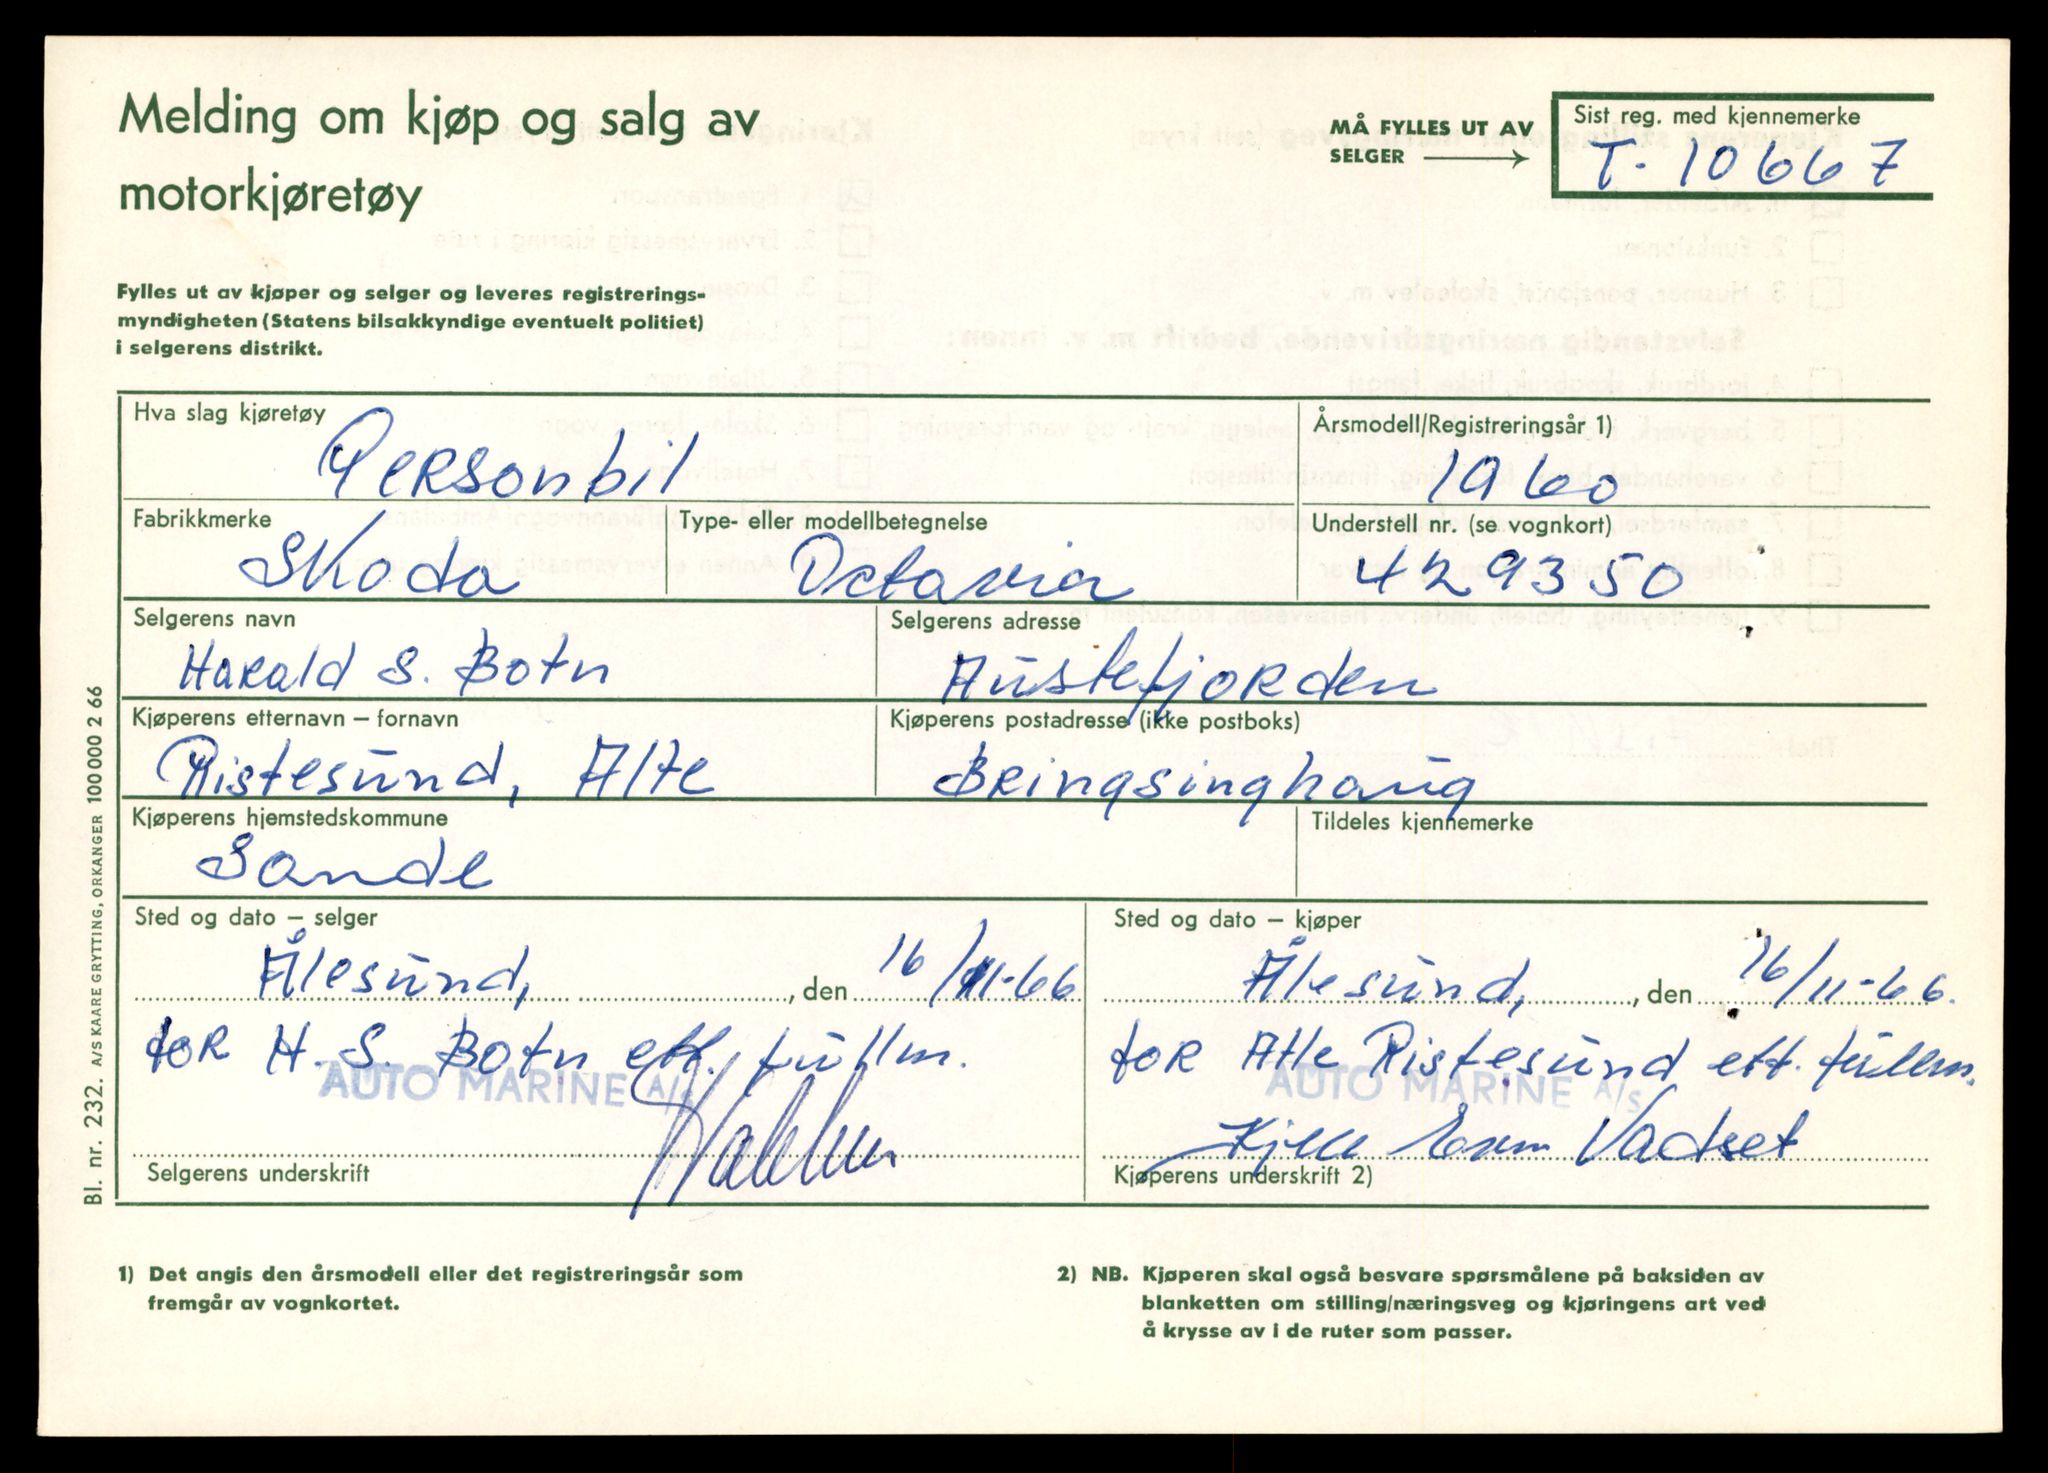 Melding om kjøp og salg av
motorkjøretøy
MÅ FYLLES UT AV
SELGER
Sist reg. med kjennemerke
T-10667
Fylles ut av kjøper og selger og leveres registrerings-
myndigheten (Statens bilsakkyndige eventuelt politiet)
i selgerens distrikt.
Hva slag kjøretøy
Personbil
Årsmodell/Registreringsår 1)
1960
Fabrikkmerke
Skoda
Type- eller modellbetegnelse
Octavia
Understell nr. (se vognkort)
429350
Selgerens navn
Harald S. Botn
Selgerens adresse
Austefjorden
Kjøperens etternavn – fornavn
Ristesund, Atle
Kjøperens postadresse (ikke postboks)
Bringsinghaug
Kjøperens hjemstedskommune
Sande
Tildeles kjennemerke
Sted og dato – selger
Ålesund, , den 16/11-66
for H. S. Botn ett. fullm.
AUTO MARINE A/S
Selgerens underskrift
Sted og dato – kjøper
Ålesund, , den 16/11-66.
for Atle Ristesund ett. fullm.
AUTO MARINE A/S
Kjell Vadset
Kjøperens underskrift 2)
1) Det angis den årsmodell eller det registreringsår som
fremgår av vognkortet.
2) NB. Kjøperen skal også besvare spørsmålene på baksiden av
blanketten om stilling/næringsveg og kjøringens art ved
å krysse av i de ruter som passer.
Bl. nr. 232. A/S KAARE GRYTTING, ORKANGER 100 000 2 66